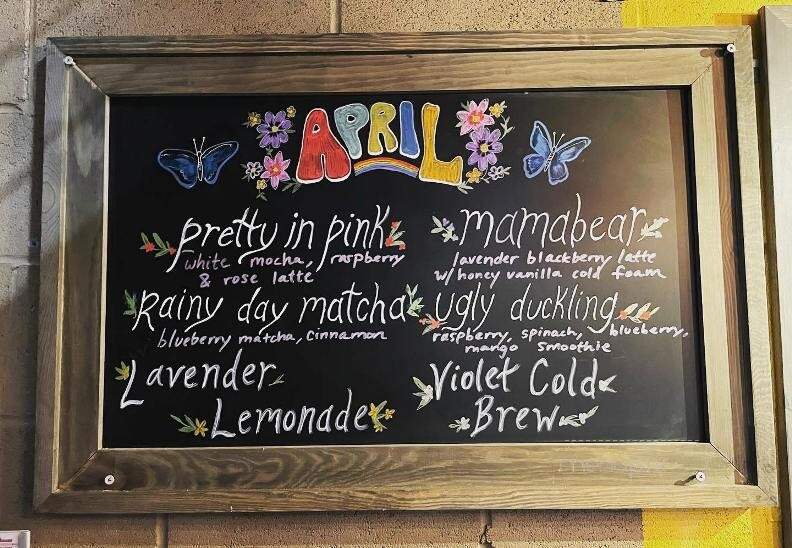 APRIL
pretty in pink
white mocha, raspberry
& rose latte
Rainy day matcha
blueberry matcha, cinnamon
Lavender
Lemonade
mamabear
lavender blackberry latte
w/ honey vanilla cold foam
ugly duckling
raspberry, spinach, blueberry,
mango smoothie
Violet Cold
Brew